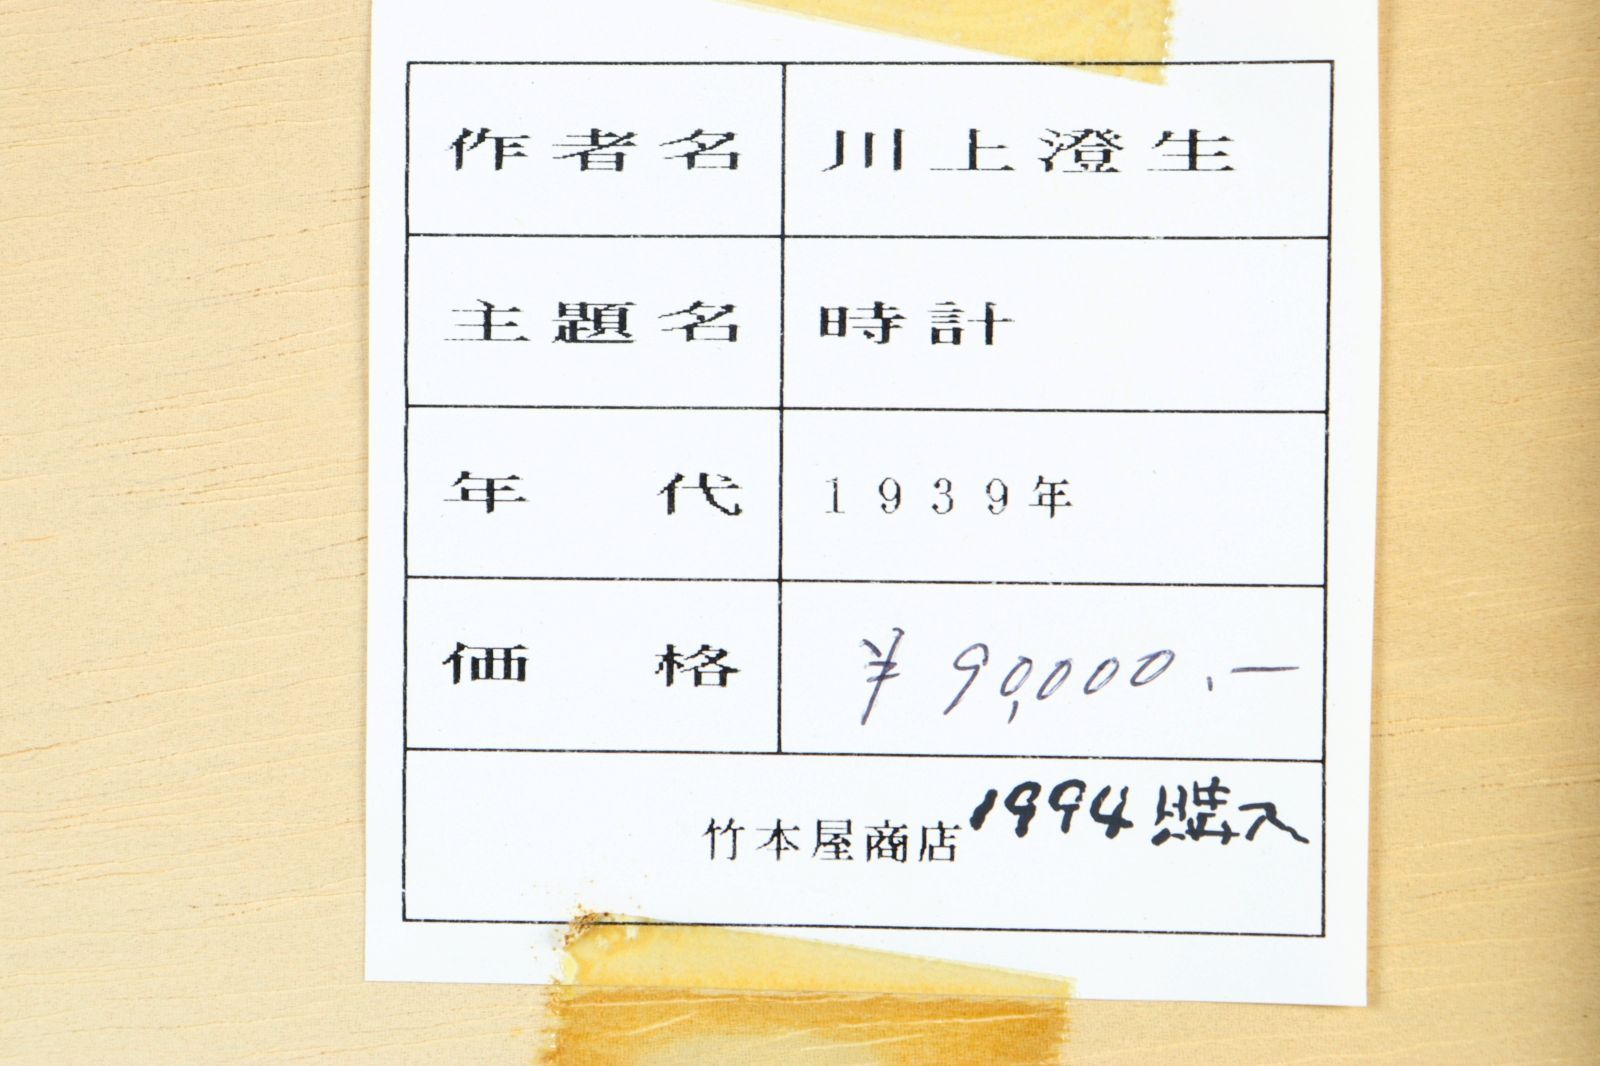 作者名 川上澄生
主題名 時計
年代 1939年
価格 ¥90,000.—
竹本屋商店 1994購入